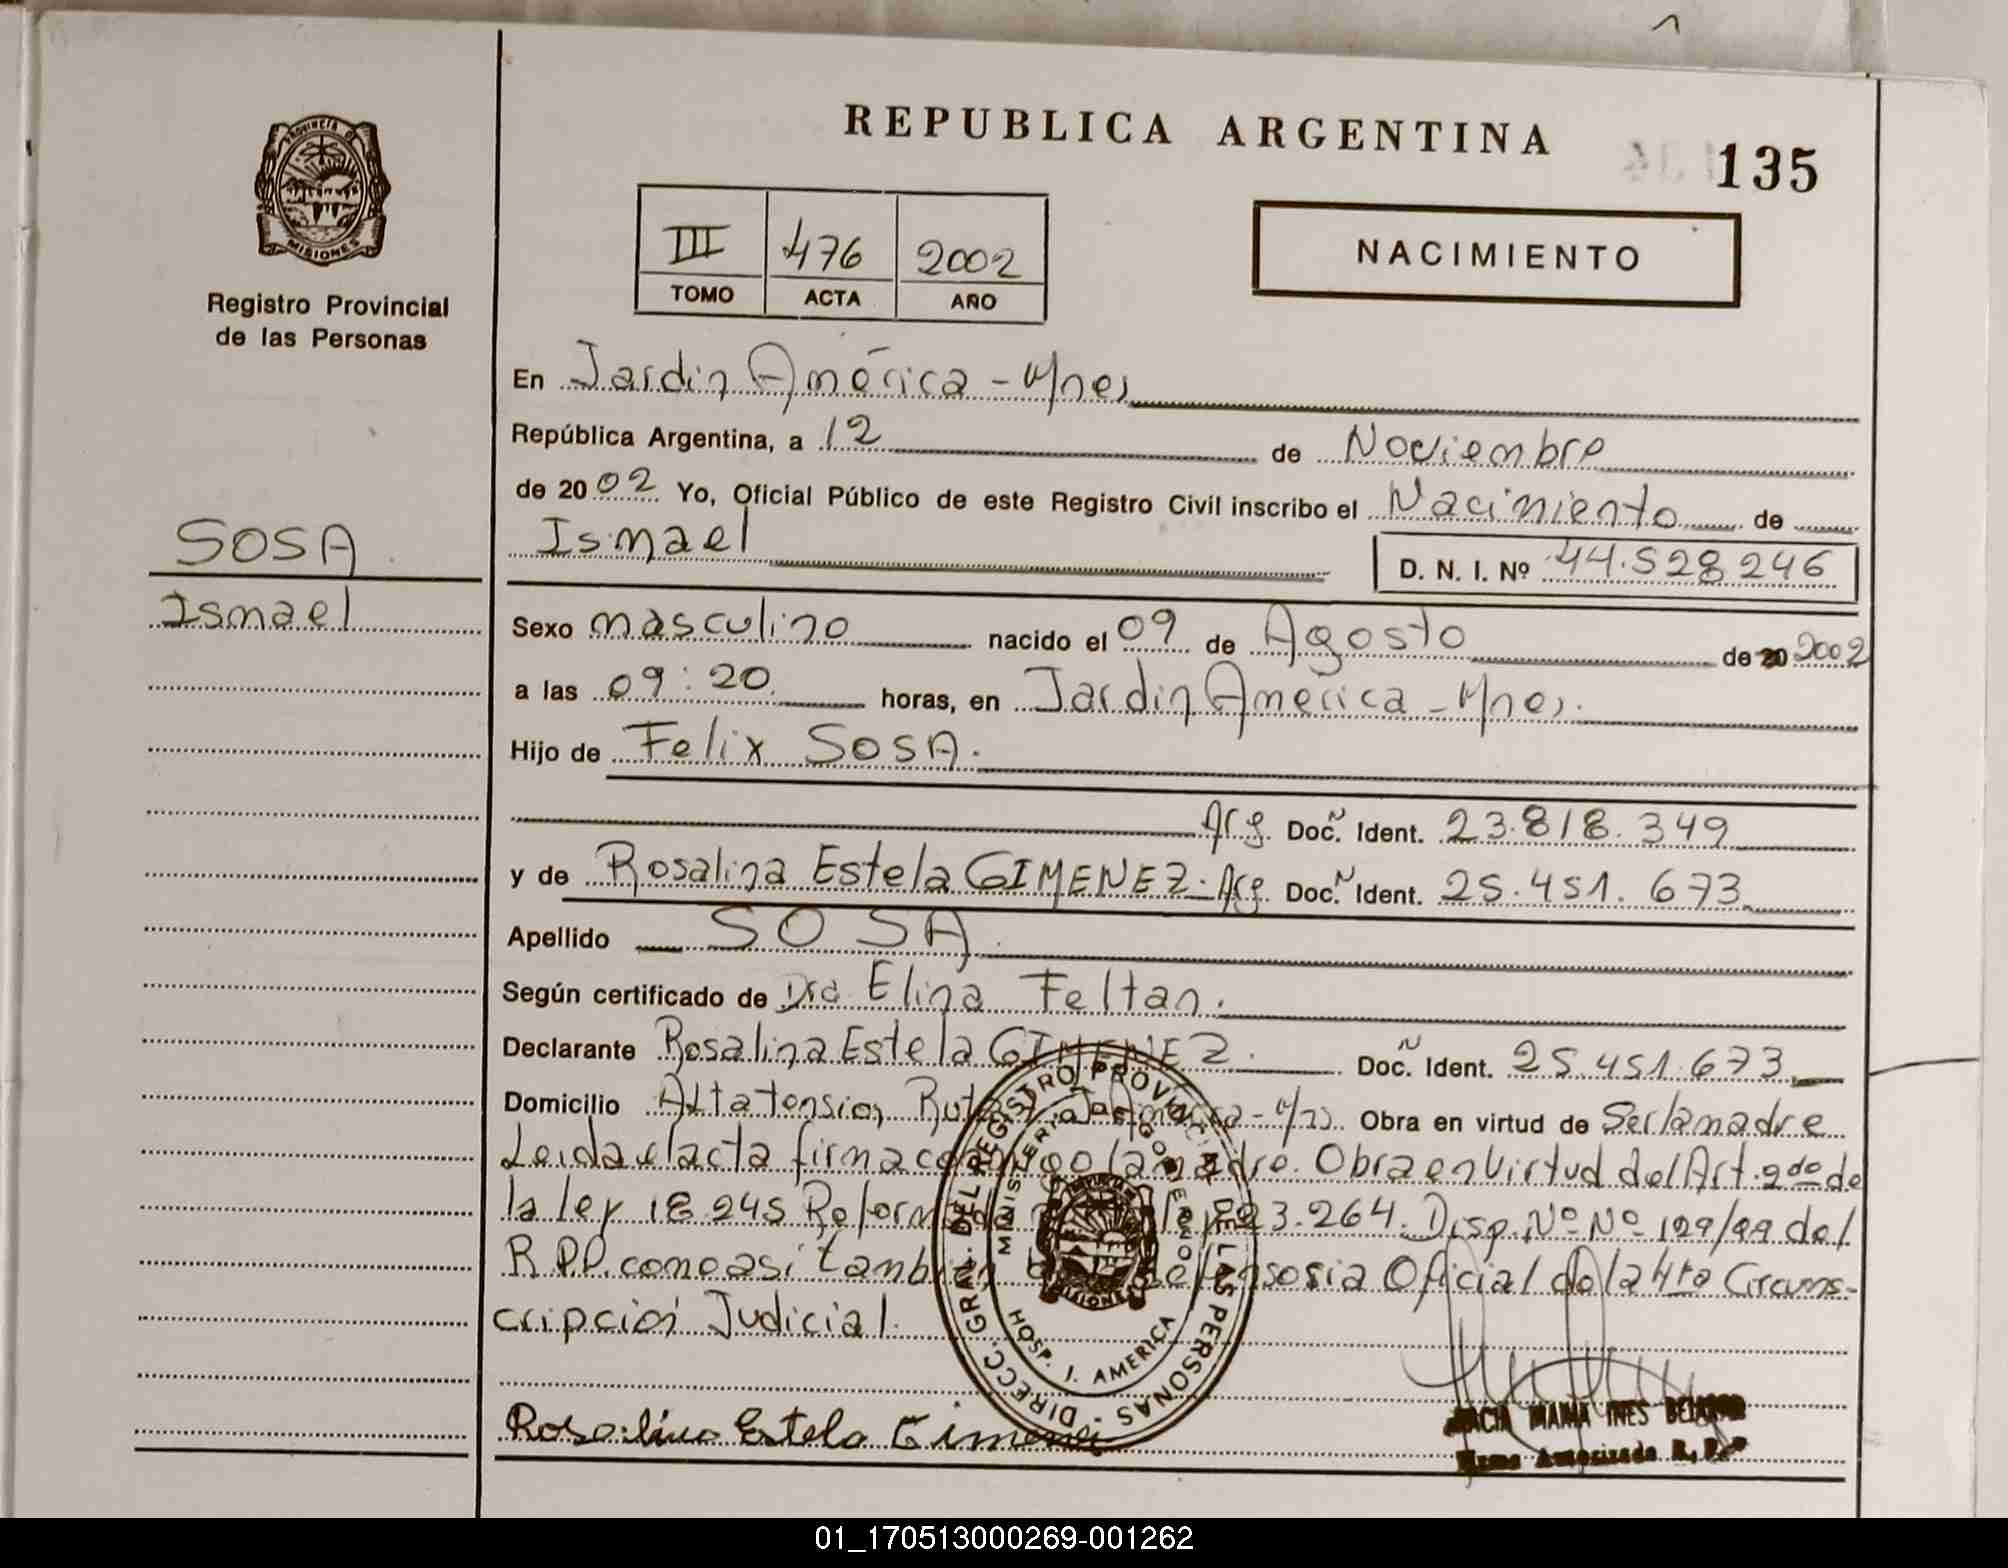 REPUBLICA ARGENTINA
135
PROVINCIA DE
MISIONES
Registro Provincial
de las Personas
III 476 2002
TOMO ACTA AÑO
NACIMIENTO
En Jardin América - Mnes
República Argentina, a 12 de Noviembre
de 20 02 Yo, Oficial Público de este Registro Civil inscribo el Nacimiento de
Ismael
D. N. I. Nº 44.528.246
SOSA
Ismael
Sexo masculino nacido el 09 de Agosto de 20 2002
a las 09:20 horas, en Jardin América - Mnes.
Hijo de Felix SOSA.
Arg. Doc. N Ident. 23.818.349
y de Rosalina Estela GIMENEZ. Arg. Doc. N Ident. 25.451.673
Apellido SOSA.
Según certificado de Dra Elina Feltan.
Declarante Rosalina Estela GIMENEZ. Doc. N Ident. 25.451.673
Domicilio Altatension, Obra en virtud de Ser la madre
Leida el acta firma la madre. Obra en Virtud del Art. 2do de
la ley 18.245 23.264. Disp. Nº Nº 129/99 del
R.P.P. como asi Oficial de la 4ta Circuns-
cripción Judicial.
DIRECC. GRAL. DEL REGISTRO PROVINCIAL DE LAS PERSONAS
MINISTERIO DE GOBIERNO
MISIONES
HOSP. J. AMERICA
Rosalina Estela Gimenez
MARIA INES
Firma Autorizada R. P. P
01_170513000269-001262